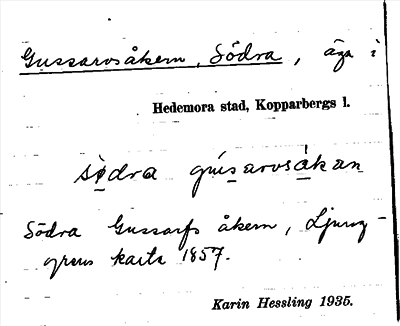 Gussarvsåkern, Södra, äga i
Hedemora stad, Kopparbergs l.
södra gúsarvsåkan
Södra Gussarfs åkern, Ljung-
grens karta 1857.
Karin Hessling 1935.